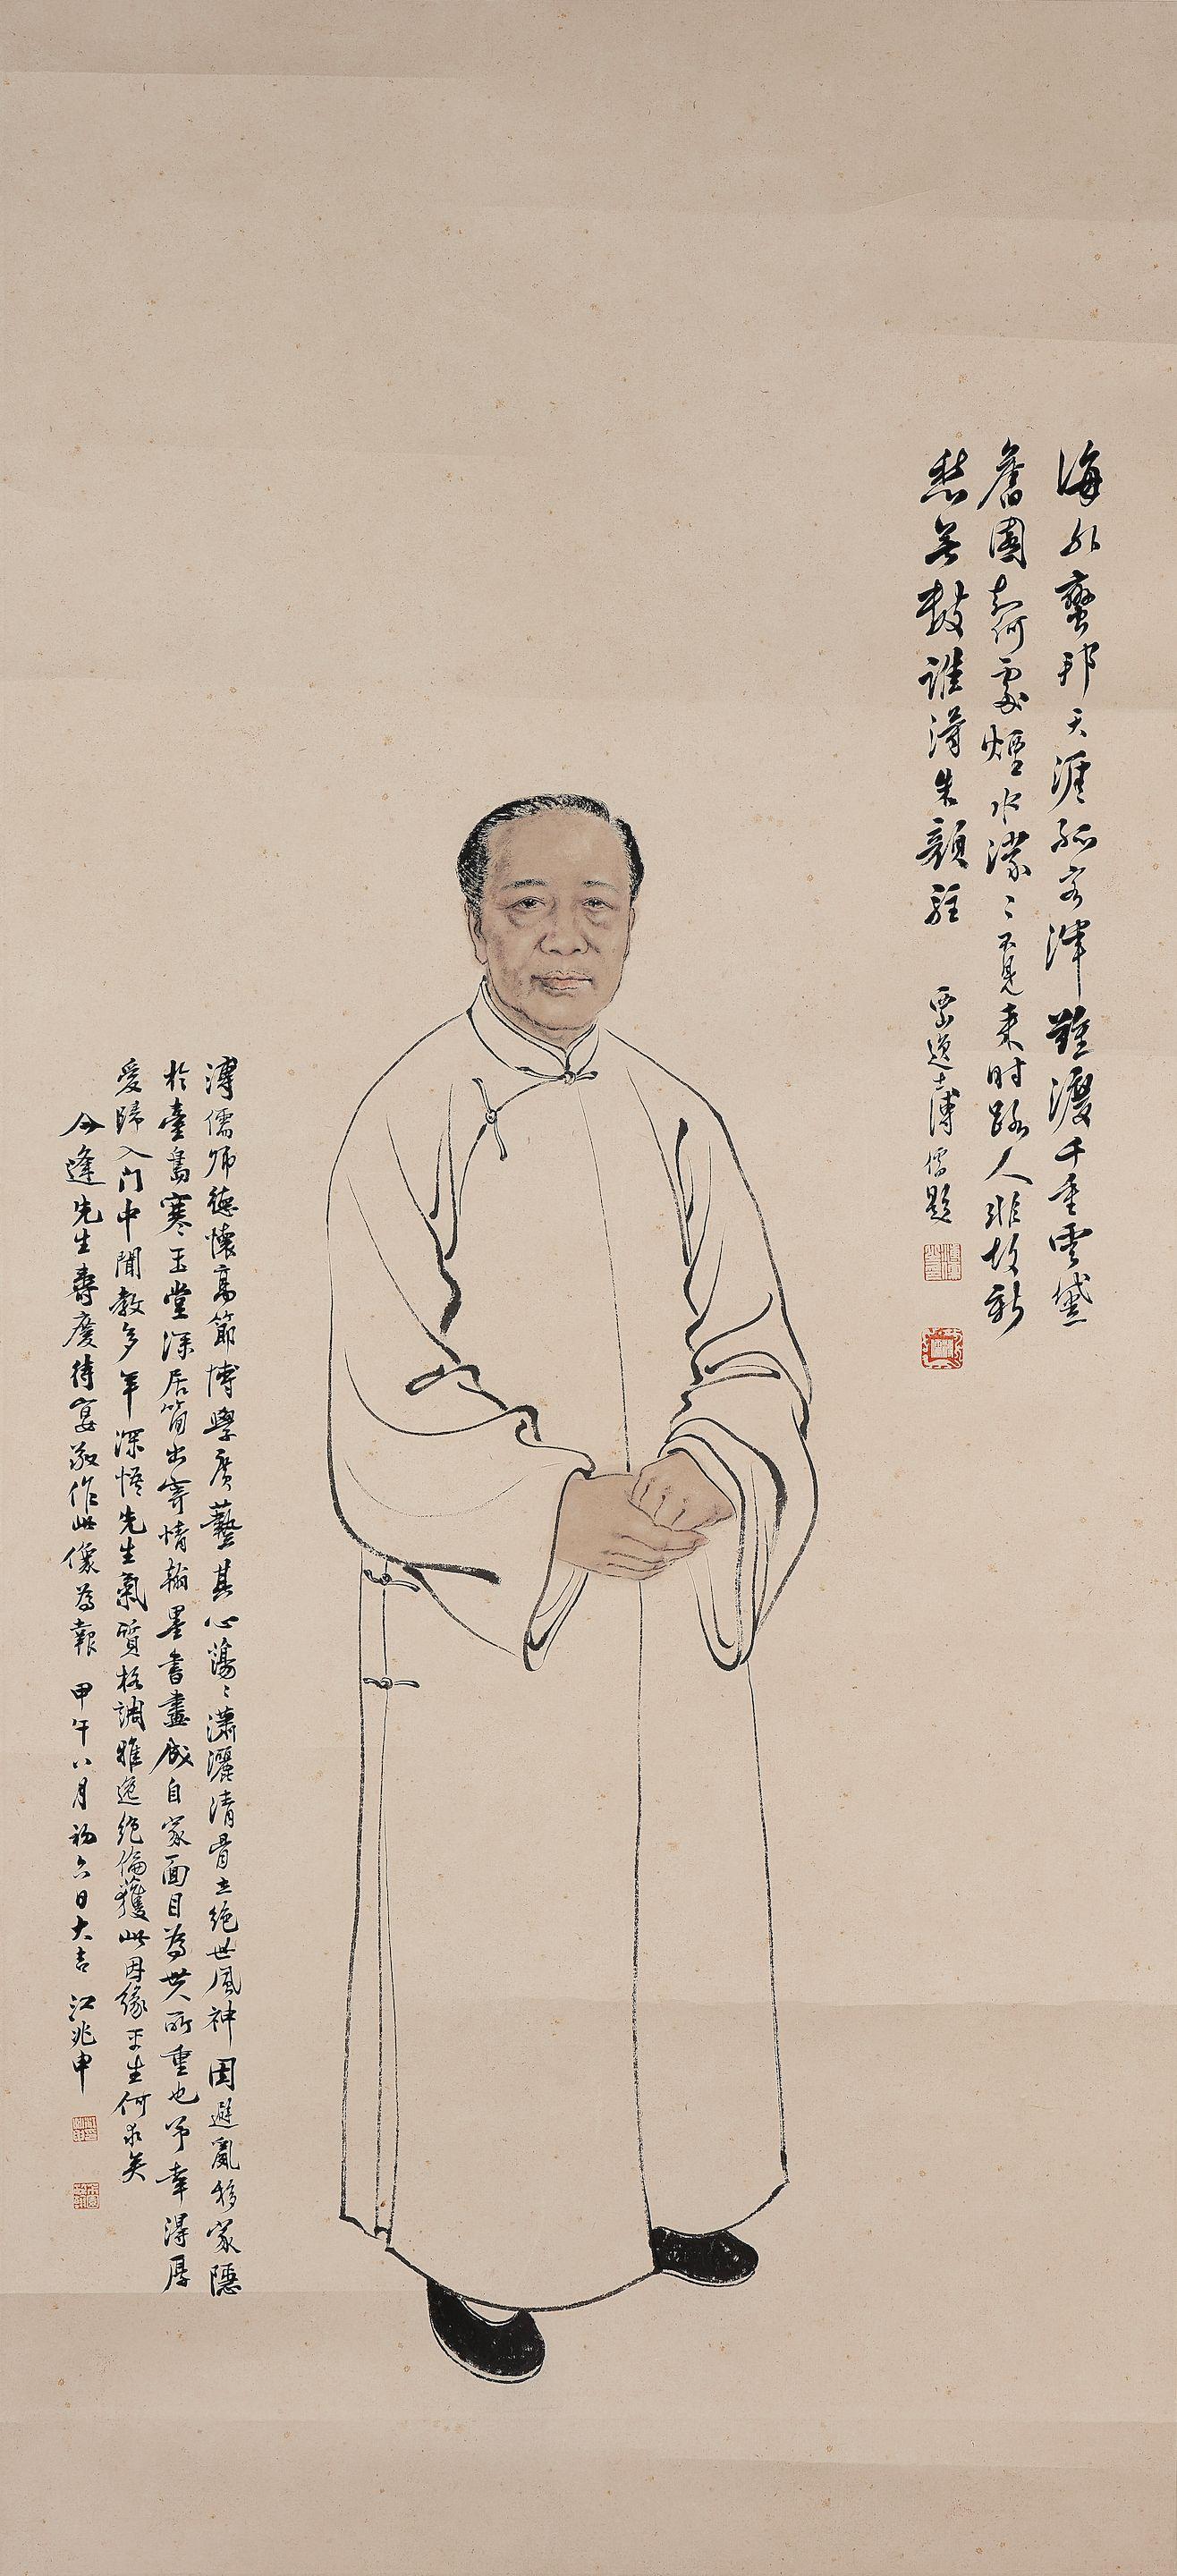 海外蠻邦天涯孤客津難渡千重雲黛
舊園對何處煙水濛〻不見來時路人非故新
愁無數誰得朱顏駐
西山逸士溥儒題
溥儒師德懷高節博學廣藝其心蕩〻瀟灑清骨立絕世風神因避亂移家隱
於臺島寒玉堂深居簡出寄情翰墨書畫成自家面目為世人所重也予幸得厚
愛歸入門中聞教多年深悟先生氣質格調雅逸絕倫獲此因緣平生何求矣
今逢先生壽慶待宴敬作此像為報 甲午八月初六日大吉 江兆申